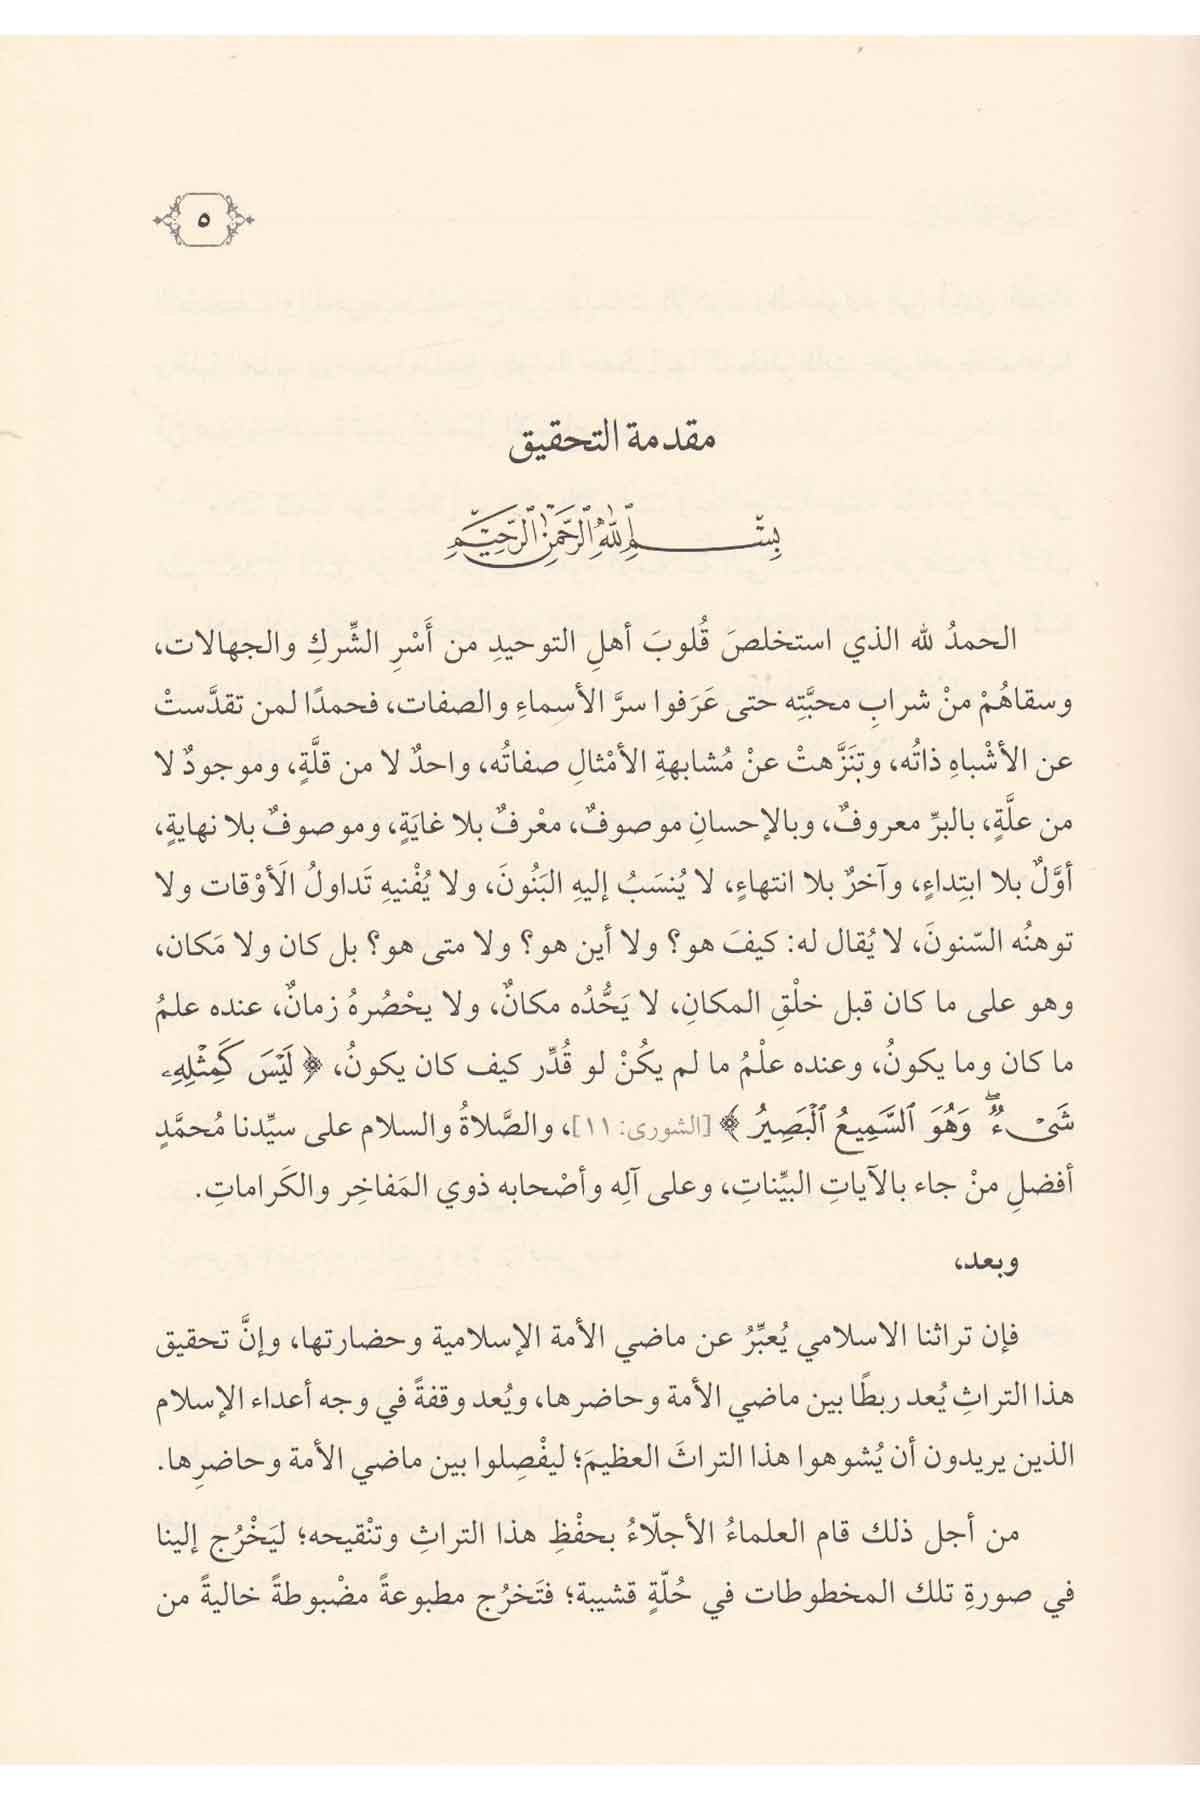 ٥
مقدمة التحقيق
بِسْمِ اللَّهِ الرَّحْمَنِ الرَّحِيمِ
الحمدُ لله الذي استخلصَ قُلوبَ أهلِ التوحيدِ من أَسْرِ الشِّركِ والجهالات،
وسقاهُمْ منْ شرابِ محبَّتِه حتى عَرَفوا سرَّ الأسماءِ والصفات، فحمدًا لمن تقدَّستْ
عن الأشْباهِ ذاتُه، وتنَزَّهتْ عنْ مُشابهةِ الأمْثالِ صفاتُه، واحدٌ لا من قلَّةٍ، وموجودٌ لا
من علَّةٍ، بالبرِّ معروفٌ، وبالإحسانِ موصوفٌ، معْرفٌ بلا غايَةٍ، وموصوفٌ بلا نهايةٍ،
أوَّلٌ بلا ابتِداءٍ، وآخرٌ بلا انتهاءٍ، لا يُنسَبُ إليهِ البَنُونَ، ولا يُفْنيهِ تَداولُ الَأوْقات ولا
توهنُه السّنونَ، لا يُقال له: كيفَ هو؟ ولا أين هو؟ ولا متى هو؟ بل كان ولا مَكان،
وهو على ما كان قبل خلْقِ المكانِ، لا يَحُّدُه مكانٌ، ولا يحْصُرهُ زمانٌ، عنده علمُ
ما كان وما يكونُ، وعنده علْمُ ما لم يكُنْ لو قُدِّر كيف كان يكونُ، ﴿ لَيْسَ كَمِثْلِهِۦ
شَىْءٌ ۖ وَهُوَ ٱلسَّمِيعُ ٱلْبَصِيرُ ﴾ [الشورى: ١١]، والصَّلاةُ والسلام على سيِّدنا مُحمَّدٍ
أفضلِ منْ جاء بالآياتِ البيِّناتِ، وعلى آلِه وأصْحابه ذوي المَفاخِر والكَراماتِ.
وبعد،
فإن تراثنا الاسلامي يُعبِّرُ عن ماضي الأمة الإسلامية وحضارتها، وإنَّ تحقيق
هذا التراثِ يُعد ربطًا بين ماضي الأمة وحاضرها، ويُعد وقفةً في وجه أعداء الإسلام
الذين يريدون أن يُشوهوا هذا التراثَ العظيمَ؛ ليفْصِلوا بين ماضي الأمة وحاضرِها.
من أجل ذلك قام العلماءُ الأجلّاءُ بحفْظِ هذا التراثِ وتنْقيحه؛ ليَخْرُج إلينا
في صورةِ تلك المخطوطات في حُلّةٍ قشيبة؛ فتَخرُج مطبوعةً مضْبوطةً خاليةً من